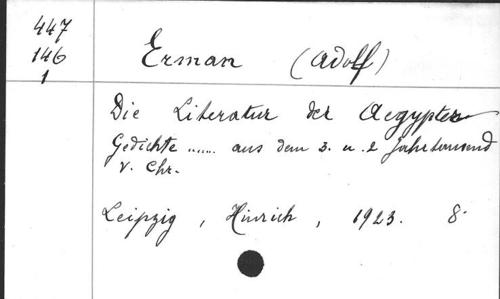 447
146
1
Erman (Adolf)
Die Literatur der Aegypter
Gedichte ...... aus dem 3. u. 2 Jahrtausend
v. Chr.
Leipzig, Hinrich, 1923. 8.